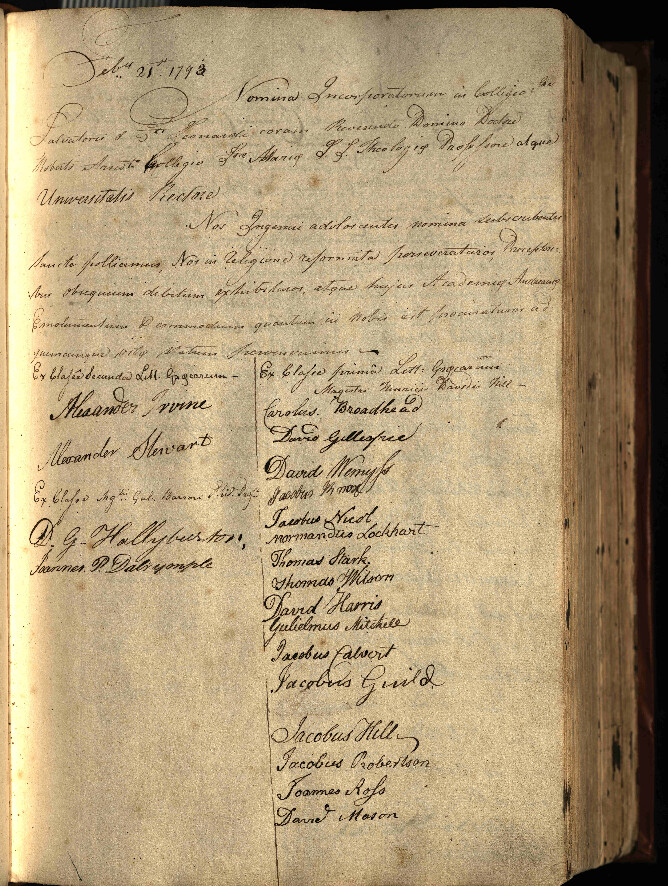 Feb.y 21st. 1793
Nomina Incorporatorum in Collegio Sti
Salvatoris & Sti Leonardi coram Reverendo Domino Doctore
Roberto Arnot Collegii Stae Mariae S. S. Theologiae Professore atque
Universitatis Rectore
Nos Ingenui adolescentes nomina subscribentes
sancte pollicemur, Nos in religione reformata perseveraturos, Praeceptori-
bus obsequium debitum exhibituros, atque hujus Academiae Andreanae
Emolumentum & commodum quantum in nobis est procuraturos ad
quemcunque vitae statum pervenerimus
Ex Classe Secunda Litt: Graecarum -
Alexander Irvine
Alexander Stewart
Ex Classe Mgri. Gul. Barron
D. G. Hallyburton,
Joannes P. Dalrymple
Ex Classe prima Litt: Graecarum
Magistri Henrici Davidis Hill -
Carolus Broadhead
David Gillespie
David Wemyss
Jacobus Knox
Jacobus Nicol
Normandus Lockhart
Thomas Stark
Thomas Wilson
David Harris
Gulielmus Mitchell
Jacobus Calvert
Jacobus Guild
Jacobus Hill
Jacobus Robertson
Joannes Ross
David Mason